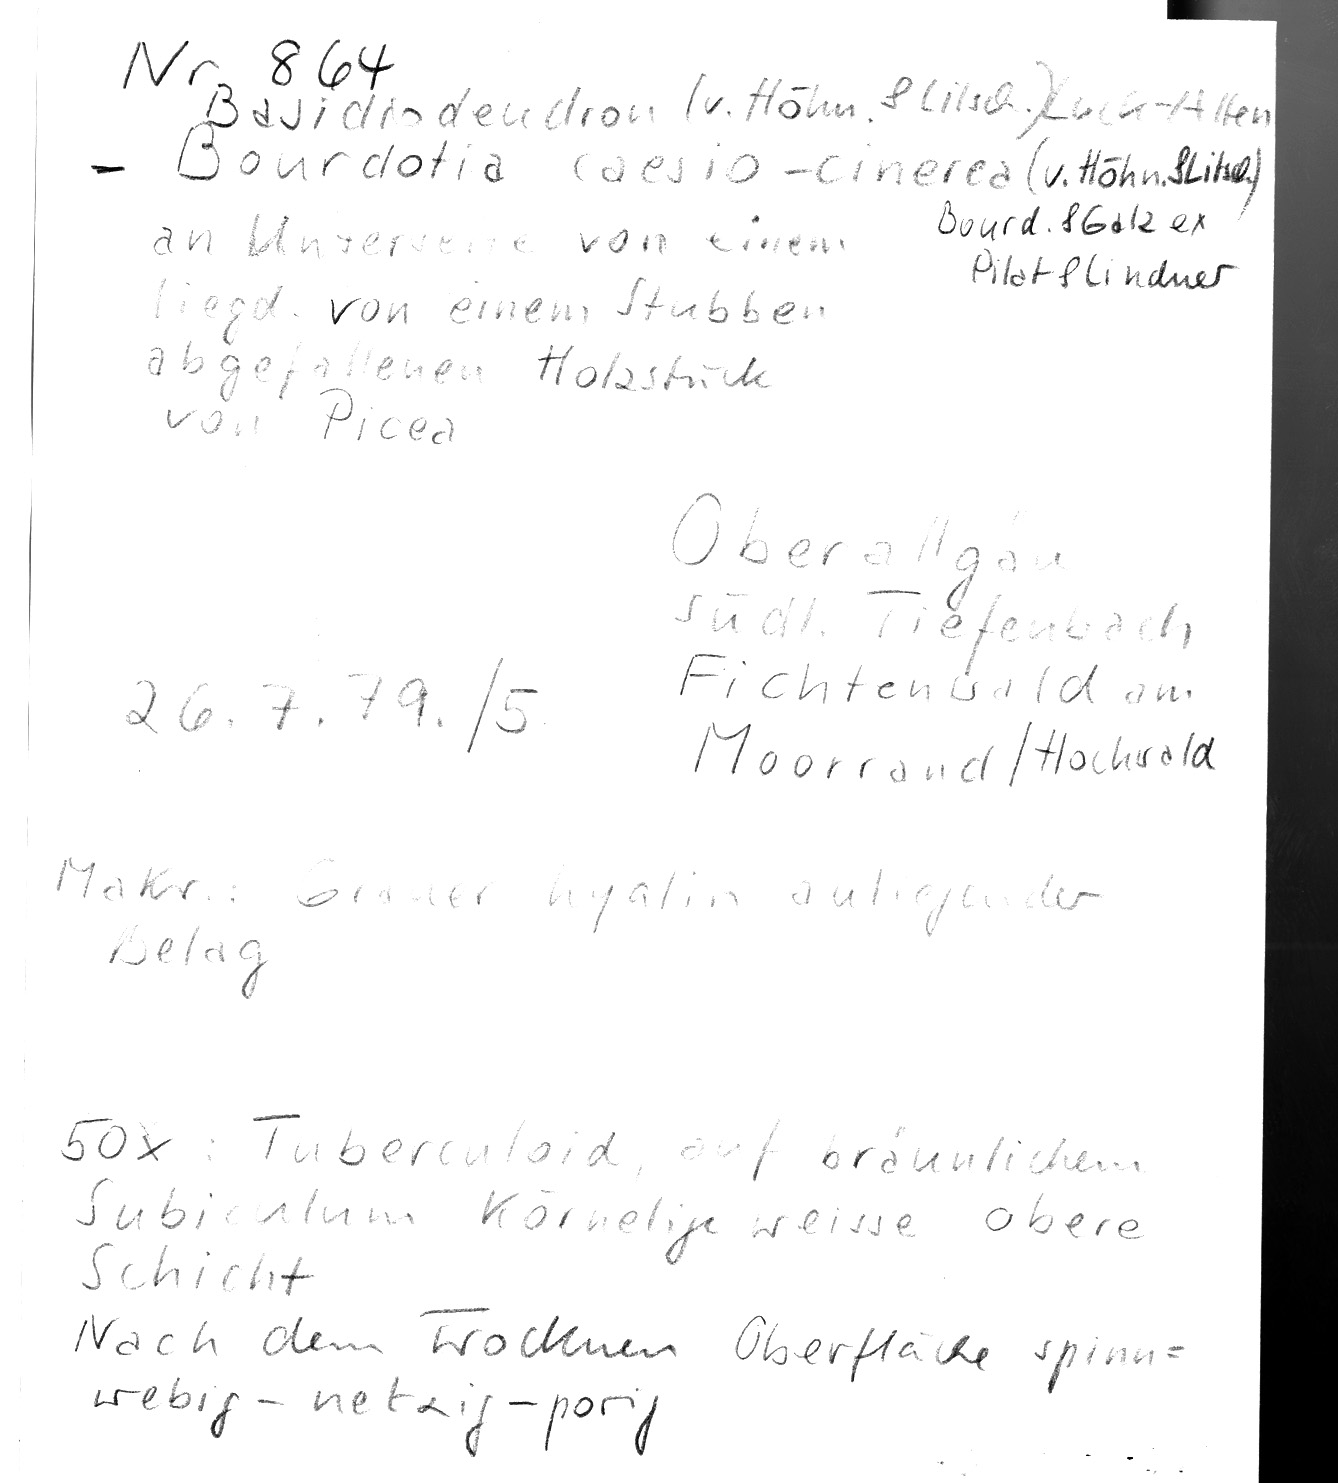 Nr. 864
Basidiodendron (v. Höhn. & Litsch.) Luck-Allen
– Bourdotia caesio-cinerea (v. Höhn. & Litsch.)
Bourd. & Galz ex
Pilat & Lindner
an Unterseite von einem
liegd. von einem Stubben
abgefallenen Holzstück
von Picea
Oberallgäu
südl. Tiefenbach
Fichtenwald am
Moorrand/Hochwald
26.7.79./5
Makr.: Grauer hyalin anliegender
Belag
50x: Tuberculoid, auf bräunlichem
Subiculum körnelige weisse obere
Schicht
Nach dem Trocknen Oberfläche spinn=
webig-netzig-porig